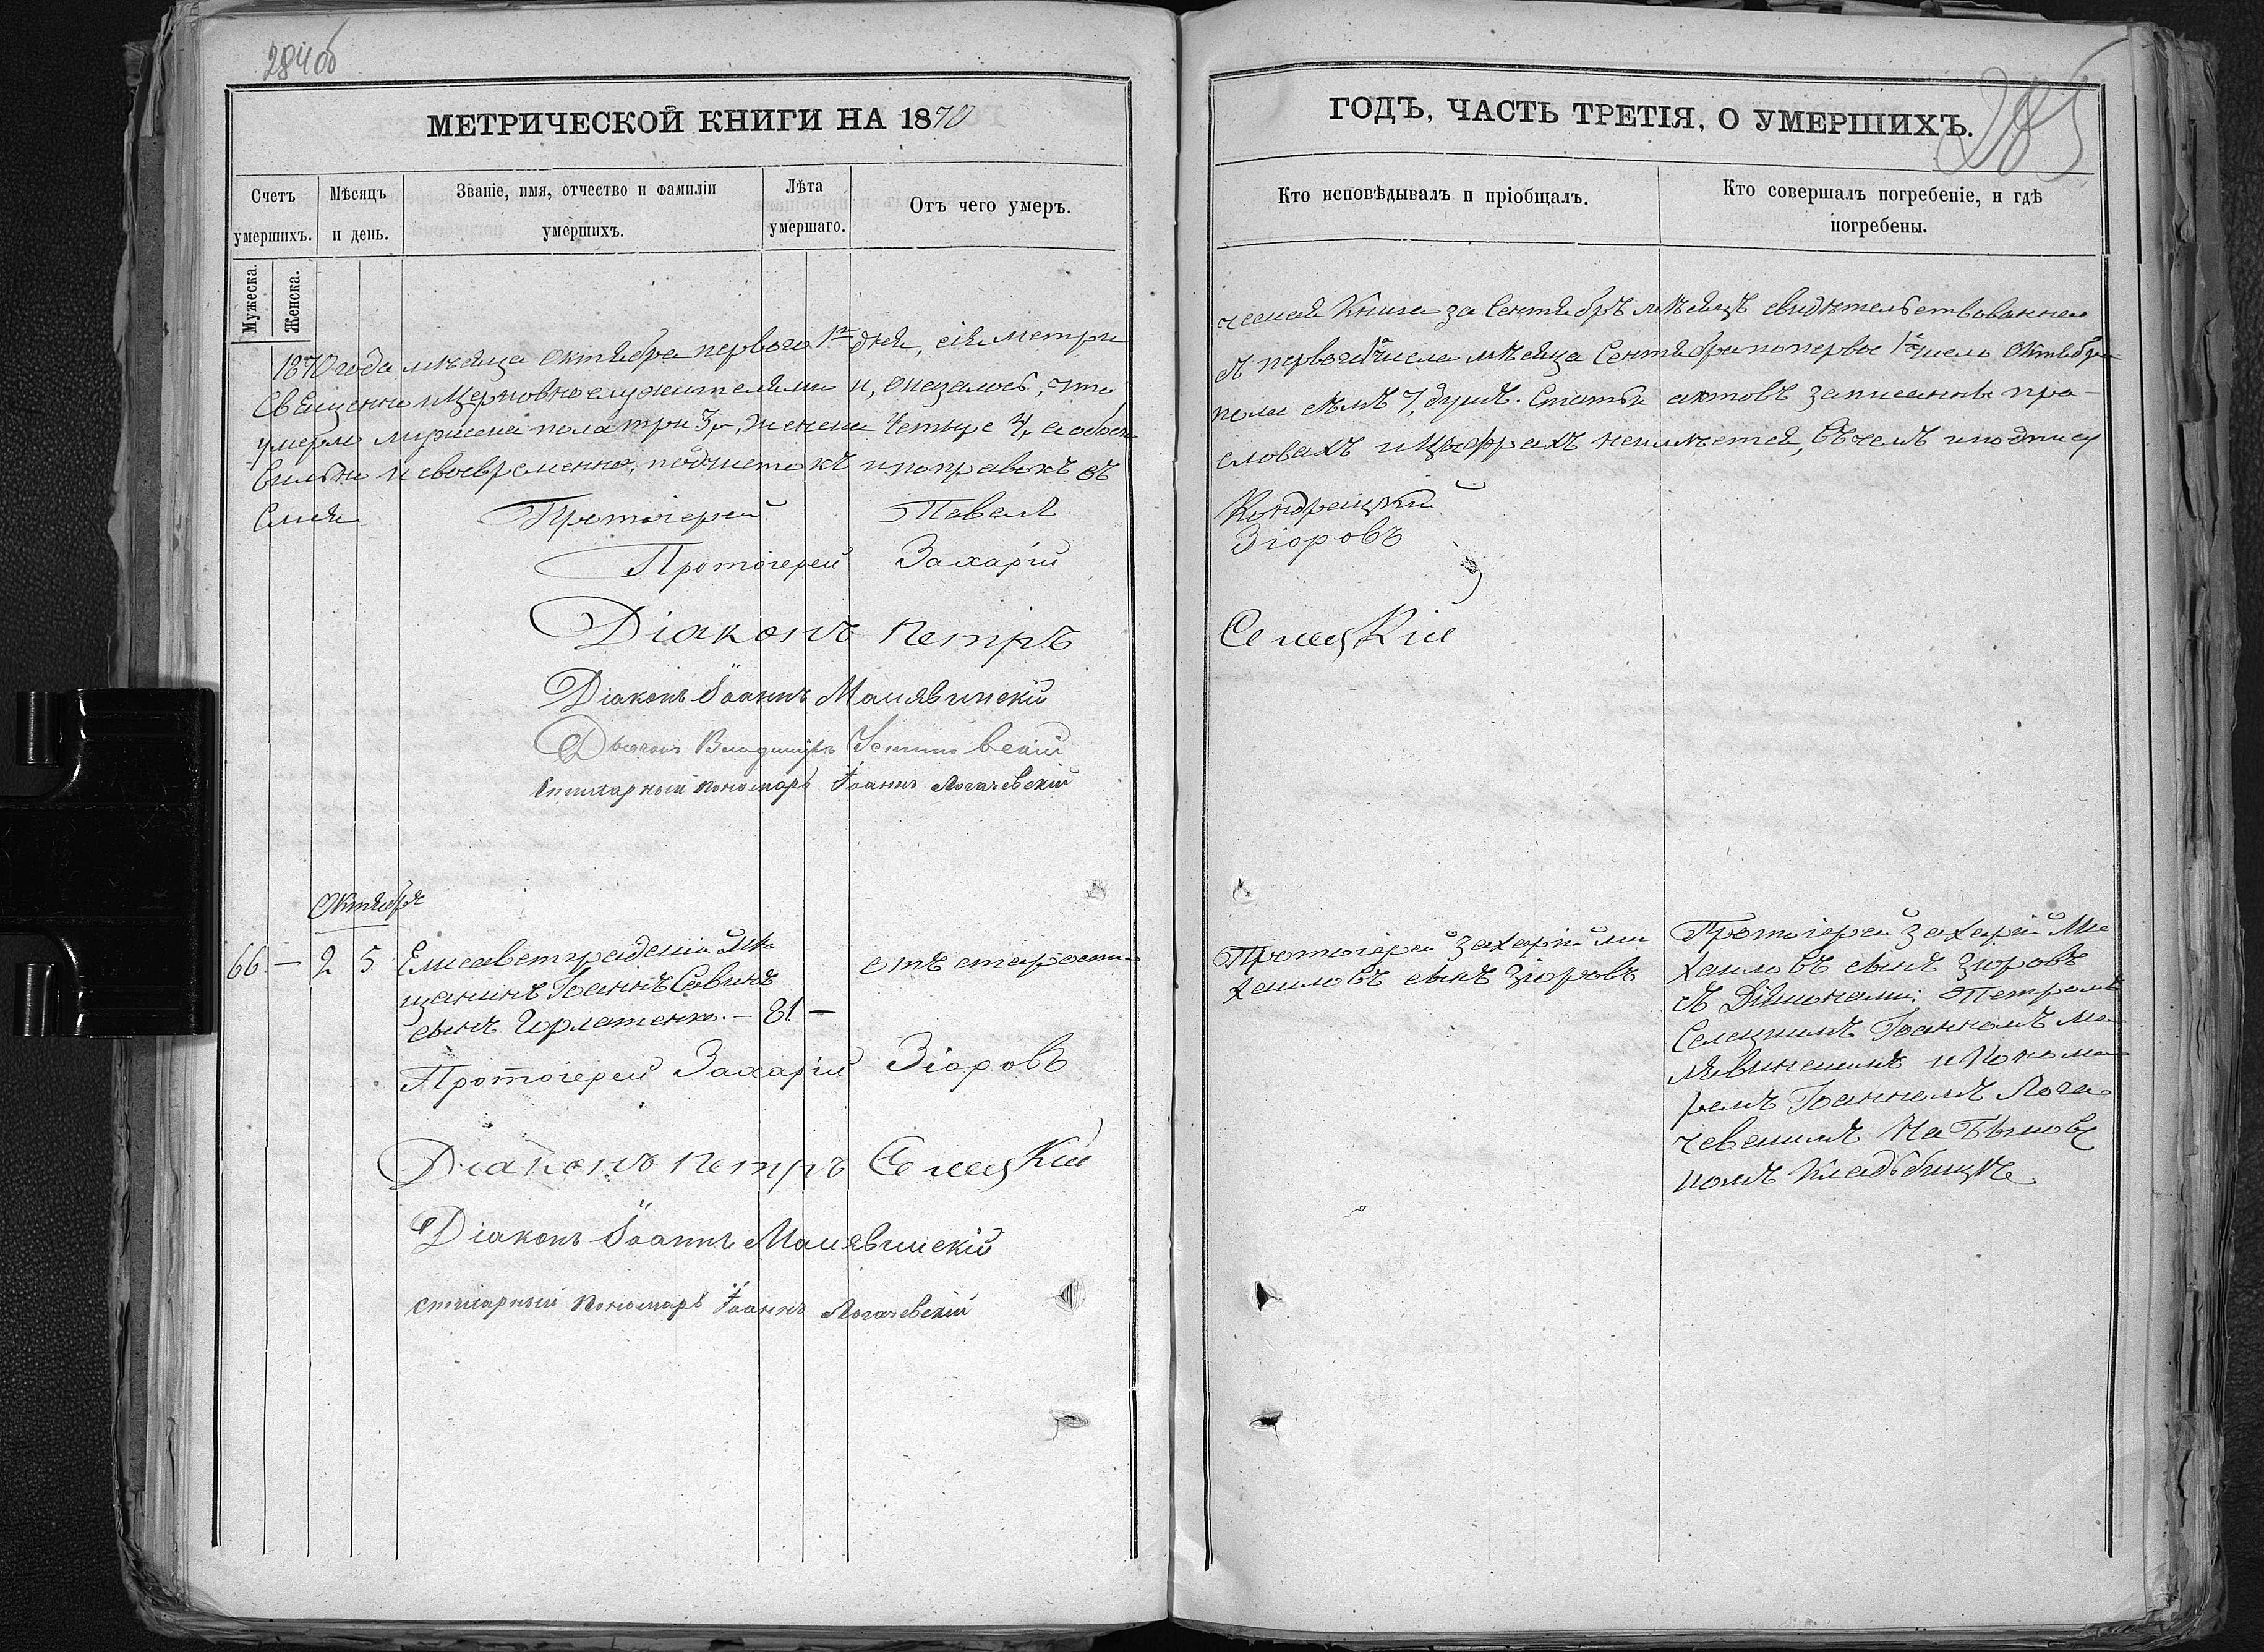 284об
МЕТРИЧЕСКОЙ КНИГИ НА 1870
Счетъ умершихъ.
Мужеска.
Женска.
Мѣсяцъ и день.
Званіе, имя, отчество и фамиліи умершихъ.
Лѣта умершаго.
Отъ чего умеръ.
1870 года мѣсяца Октября перваго 1го дня, сія метри
Священно и Церковнослужителями и, оказалось, что
умерло мужеска пола три 3, женска Четыре 4, а обоего
вильны и своевременно, подчистокъ и поправокъ въ
емся
Протоіерей Павелъ
Протоіерей Захарій
Діаконъ Петръ
Діаконъ Іоаннъ Малявинскій
Дьячокъ Владимиръ Устиновскій
Стихарный пономарь Іоаннъ Логачевскій
Октября
66 — 2 5 Елисаветградскій мѣ
щанинъ Іоаннъ Савинъ
сынъ Горлатенко. — 81 —
отъ старости
Протоіерей Захарій Зіоровъ
Діаконъ Петръ Селецкій
Діаконъ Іоаннъ Малявинскій
стихарный пономарь Іоаннъ Логачевскій
285
ГОДЪ, ЧАСТЬ ТРЕТІЯ, О УМЕРШИХЪ.
Кто исповѣдывалъ и пріобщалъ.
Кто совершалъ погребеніе, и гдѣ погребены.
ческая Книга за Сентябрь мѣсяцъ свидѣтельствована
съ перваго 1го числа мѣсяца Сентября по первое 1е число Октября
пола семь 7, душъ. Статьи актовъ записанны пра-
словахъ и Цыфрахъ неимѣется, въ чемъ и подпису
Кондрацкій
Зіоровъ
Селецкій
Протоіерей Захарій Ми
хаиловъ сынъ Зіоровъ
Протоіерей Захарій Ми
хаиловъ сынъ Зіоровъ
съ Діяконами: Петромъ
Селецкимъ Іоанномъ Ма
лявинскимъ и Понома
ремъ Іоанномъ Лога
чевскимъ на Быков
комъ Кладбищѣ.